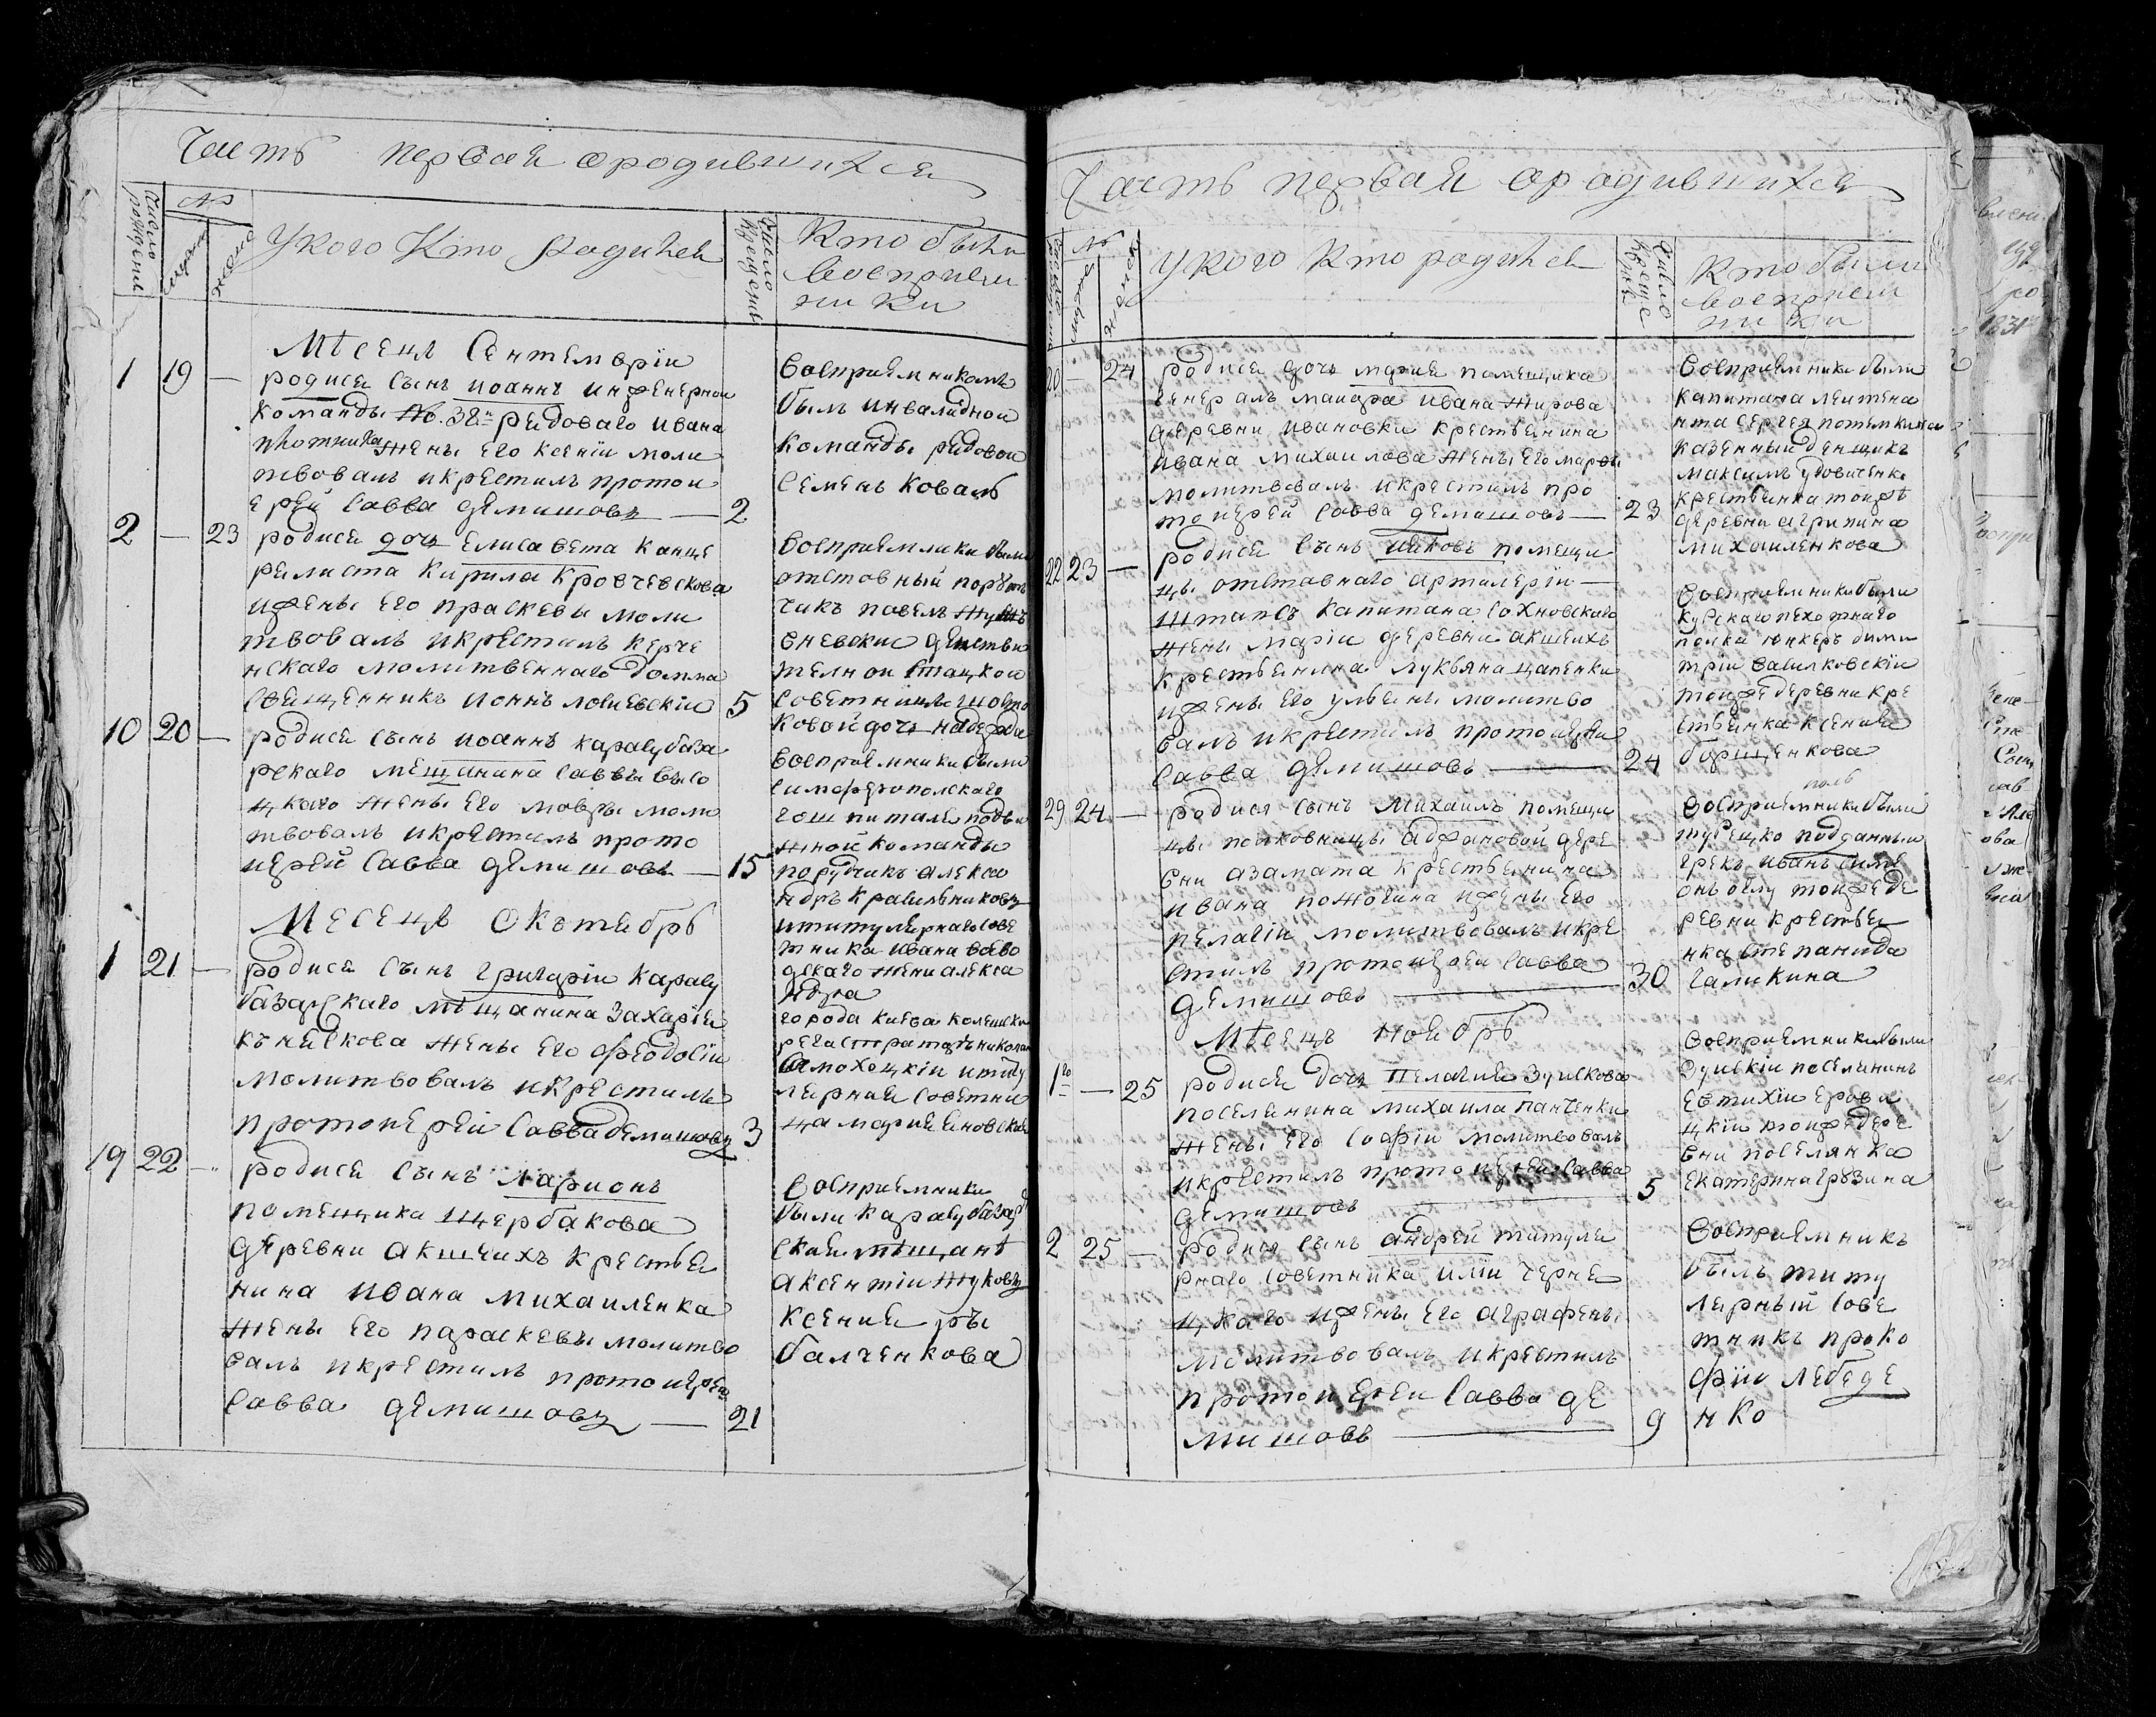 Часть первая о родившихся
Число рождения
№
мужеск
женс
У кого кто родился
Число крещения
Кто были
восприем
ники
Мѣсецъ Сентемврiи
1 19 — родися сынъ Иоаннъ инженерной
команды № 38й рядоваго Ивана
Плотника жены его Ксенiи моли
твовалъ и крестилъ протои
ерей Савва Демишовъ — 2
Восприемникомъ
былъ инвалидной
команды рядовой
Семенъ Коваль
2 — 23 родися дочь Елисавета канце
релиста Кирила Кровчевскова
и жены его Праскевы моли
твовалъ и крестилъ керче
нскаго молитвеннаго домма
священникъ Ионнъ 5
Восприемлики были
отставный порут
чикъ Павелъ
вневский действи
телной стацкой
советницы
ковой дочь Надежда
10 20 — родися сынъ Иоаннъ карасубаза
рскаго мещанина Саввы Высо
цкаго жены его Мавры моли
твовалъ и крестилъ прото
иерей Савва Демишовъ — 15
Восприемники были
симферополскаго
гошпиталя подви
жной команды
порутчикъ Алекса
ндръ Красильниковъ
и титулярнаго сове
тника Ивана Воево
дскаго жена Алекса
ндра
Месецъ Октябрь
1 21 — родися сынъ Григорiи карасу
базарскаго мѣщанина Захарiя
жены его Феодосiи
молитвовалъ и крестилъ
протоиерей Савва Демишовъ 3
города Киева колешки
регастраторъ Николаи
Самохоцкiи и титу
лярная советни
ца Мария
19 22 — родися сынъ Ларионъ
помещика Щербакова
деревни Акшчихъ крестья
нина Ивана Михаиленка
жены его Параскевы молитво
валъ и крестилъ протоиерей
Савва Демишовъ — 21
Восприемники
были карасубазар
ская мѣщанѣ
Аксентiи Жуковъ
Ксения ры
балченкова
Часть первая о родившихся
№
мужс
женск
У кого кто родился
Число крещения
Кто были
восприем
ники
20 — 24 родися дочь Мария помещика
генералъ маиора Ивана Жирова
деревни Ивановки крестьянина
Ивана Михаилова жены его Марфы
молитвовалъ и крестилъ про
тоиерей Савва Демишовъ — 23
Восприемники были
капитана леитена
нта Сергея Потемкина
казенный денщикъ
Максимъ Удовиченко
крестьянка тоижѣ
деревни Агрипина
Михаиленкова
22 23 — родися сынъ Иаковъ помещи
цы отставнаго артилерiи —
штапсъ капитана Сохновскаго
жены Марiи деревни Акшеихъ
крестьянина Лукьяна Цапенки
и жены его Ульяны молитво
валъ и крестилъ протоиереи
Савва Демишовъ — 24
Восприемники были
Курскаго пехотнаго
полка юнкеръ Дими
трiи Василковскiи
тоиже деревни кре
стьянка Ксения
Борщенкова
29 24 — родися сынъ Михаилъ помещи
цы полковницы Адфановой дере
вни Азамата крестьянина
Ивана Пожогина и жены его
Пелагiи молитвовалъ и кре
стилъ протоиереи Савва
Демишовъ — 30
Восприемники были
турецко подданный
грекъ Иванъ Симе
онъ оглу тоиже де
ревни крестья
нка Степанида
Галикина
Мѣсецъ Ноябрь
1го — 25 родися дочь Пелагия Зуискова
поселянина Михаила Панченки
жены его Софiи молитвовалъ
и крестилъ протоиереи Савва
Демишовъ — 5
Восприемники были
Зуискiи поселянинъ
Евтихiи Ерови
цкiи тоиже дере
вни поселянка
Екатерина Грузина
2 25 — родися сынъ Андрей титуля
рнаго советника Илiи Черне
цкаго и жены его Аграфены
молитвовалъ и крестилъ
протоиереи Савва Де
мишовъ — 9
Восприемникъ
былъ титу
лярный сове
тникъ Проко
фiи Лебеде
нко